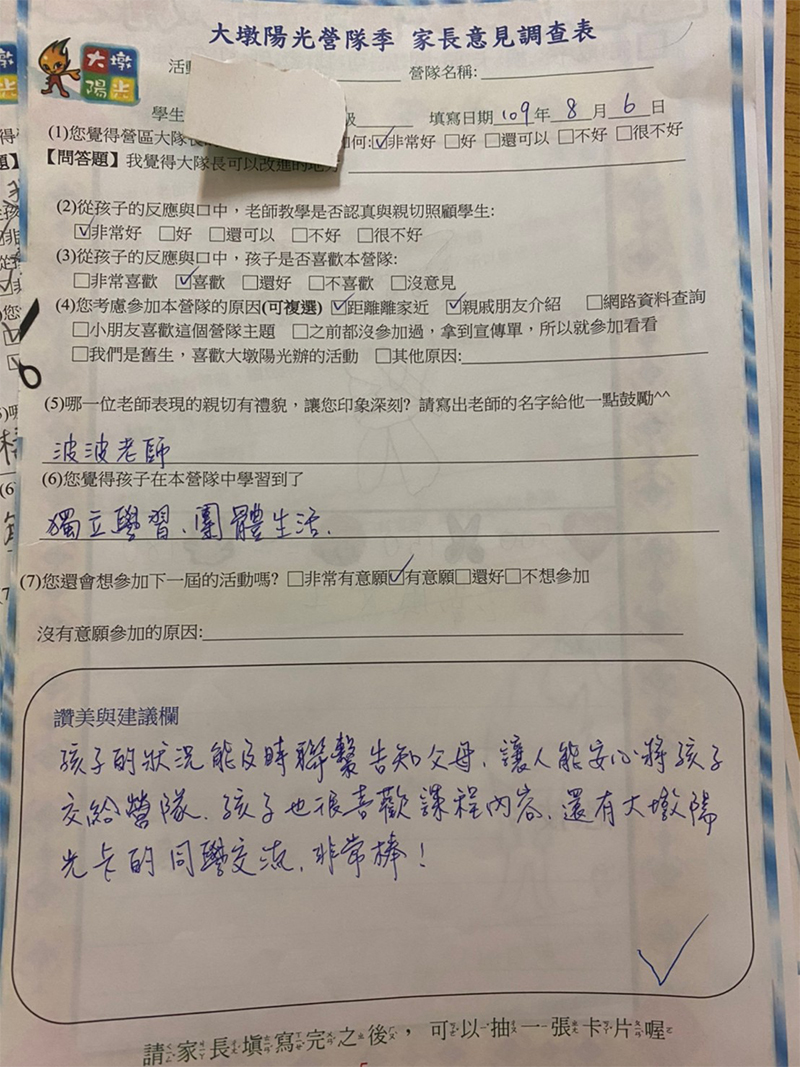 大墩陽光營隊季 家長意見調查表
大墩
陽光
活 營隊名稱:
學生 級 填寫日期 109年 8 月 6 日
(1)您覺得營區大隊長 如何:☑非常好 □好 □還可以 □不好 □很不好
【問答題】我覺得大隊長可以改進的地方
(2)從孩子的反應與口中，老師教學是否認真與親切照顧學生:
☑非常好 □好 □還可以 □不好 □很不好
(3)從孩子的反應與口中，孩子是否喜歡本營隊:
□非常喜歡 ☑喜歡 □還好 □不喜歡 □沒意見
(4)您考慮參加本營隊的原因(可複選) ☑距離離家近 ☑親戚朋友介紹 □網路資料查詢
□小朋友喜歡這個營隊主題 □之前都沒參加過，拿到宣傳單，所以就參加看看
□我們是舊生，喜歡大墩陽光辦的活動 □其他原因:
(5)哪一位老師表現的親切有禮貌，讓您印象深刻? 請寫出老師的名字給他一點鼓勵^^
波波老師
(6)您覺得孩子在本營隊中學習到了
獨立學習、團體生活.
(7)您還會想參加下一屆的活動嗎? □非常有意願☑有意願□還好□不想參加
沒有意願參加的原因:
讚美與建議欄
孩子的狀況能及時聯繫告知父母、讓人能安心將孩子
交給營隊、孩子也很喜歡課程內容、還有大墩陽
光卡的同學交流、非常棒！
請家長填寫完之後，可以抽一張卡片喔